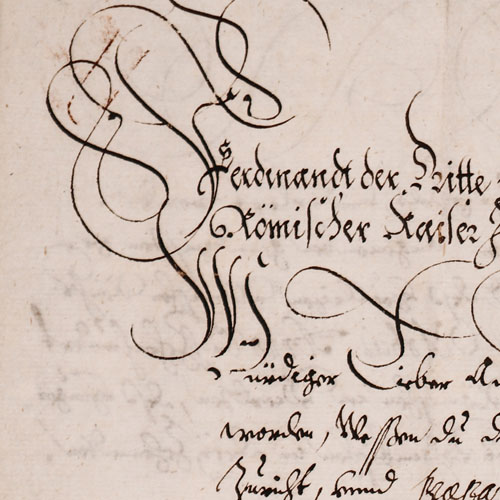 Ferdinandt der Dritte
Römischer Kaiser
Würdiger Lieber
worden, Wessen du
Zuricht, vnnd